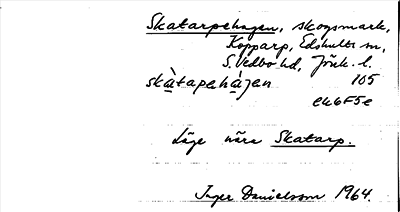 Skatarpehagen, skogsmark,
Kopparp, Edshults sn,
S.Vedbo hd, Jönk. l.
skàtapeháǥen 105
ek6F5e
Läge nära Skatarp.
Inger Danielsson 1964.